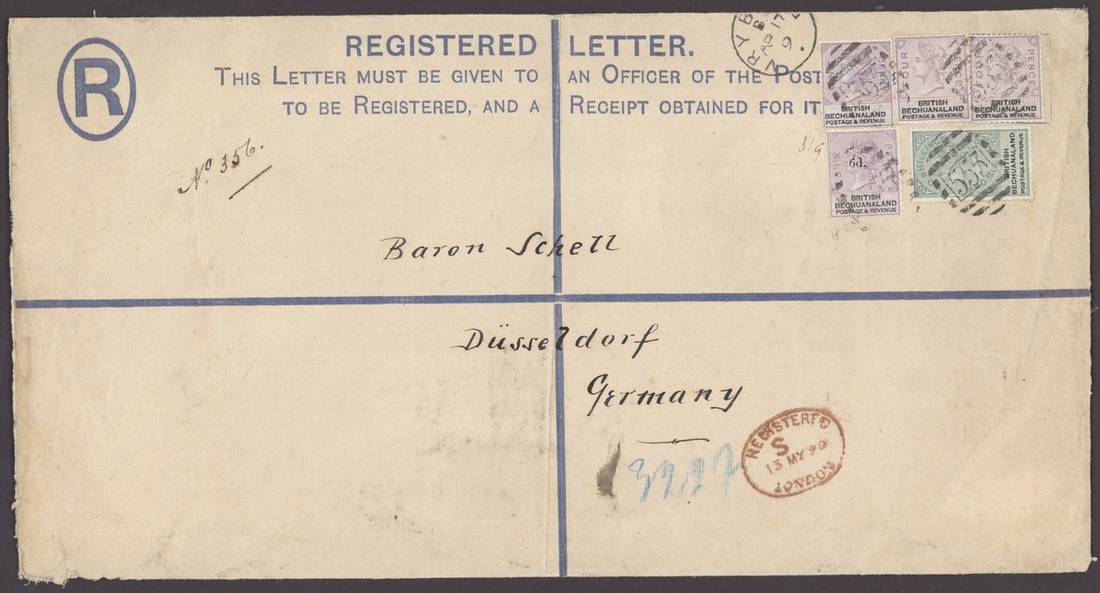 R
REGISTERED LETTER.
THIS LETTER MUST BE GIVEN TO AN OFFICER OF THE POST
TO BE REGISTERED, AND A RECEIPT OBTAINED FOR IT
No. 356.
NRY B
B
AP 17
9
FOUR PENCE
BRITISH
BECHUANALAND
POSTAGE & REVENUE
FOUR PENCE
BRITISH
BECHUANALAND
POSTAGE & REVENUE
SIX PENCE
6d.
BRITISH
BECHUANALAND
POSTAGE & REVENUE
BRITISH
BECHUANALAND
POSTAGE & REVENUE
555
3/9
Baron Schell
Düsseldorf
Germany
3227
REGISTERED
S
13 MY 90
LONDON